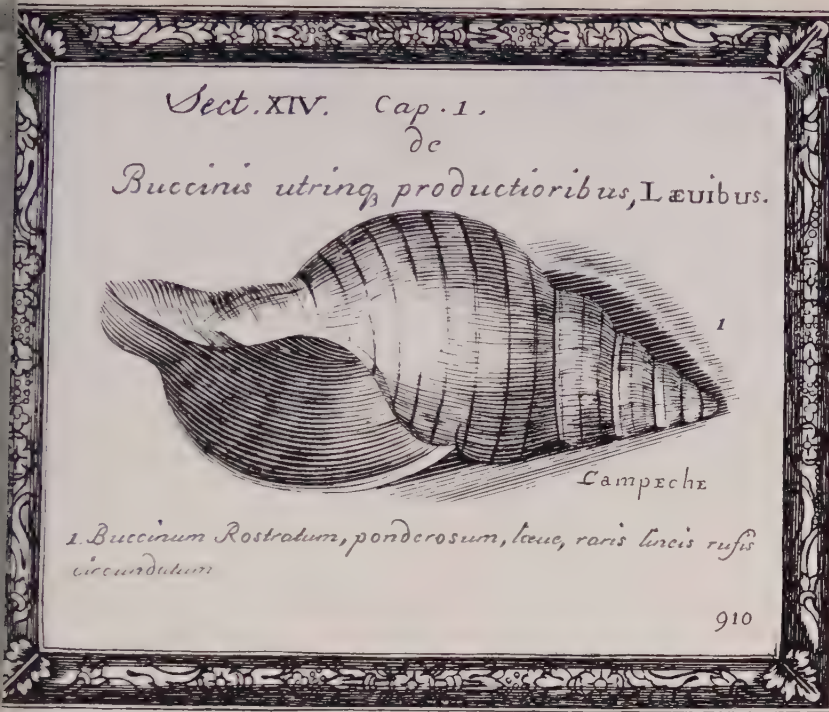 Sect. XIV. Cap. 1.
de
Buccinis utrinqȝ productioribus, Læuibus.
1
Campeche
1. Buccinum Rostratum, ponderosum, læue, raris lineis rufis
circundatum
910